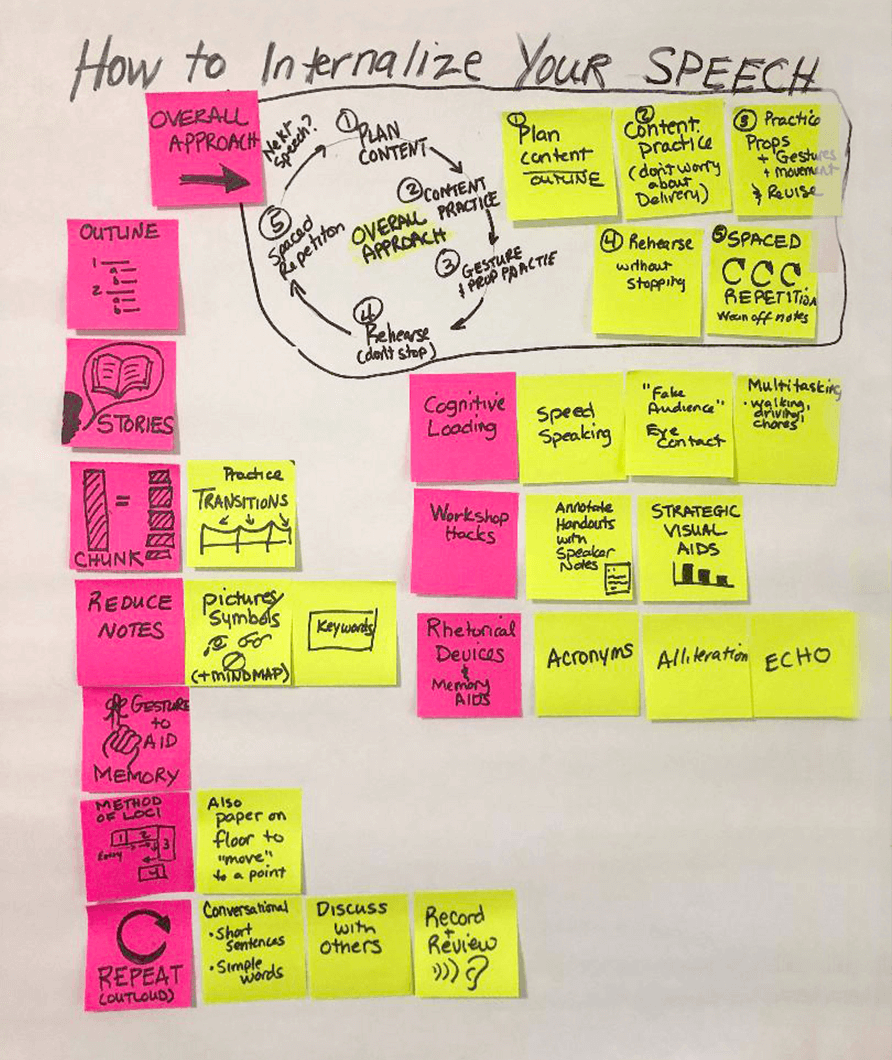 How to Internalize Your SPEECH
OVERALL
APPROACH
Next
Speech?
① PLAN
CONTENT
② CONTENT
PRACTICE
③ GESTURE
& PROP PRACTIE
④
Rehearse
(don't stop)
⑤
Spaced
Repetiton
OVERALL
APPROACH
① Plan
content
OUTLINE
②
Content
practice
(don't worry
about
Delivery)
③ Practice
Props
+ Gestures
+ movement
& Revise
④ Rehearse
without
stopping
⑤ SPACED
REPETITION
Wean off notes
OUTLINE
1
a
b
2
a
b
STORIES
=
CHUNK
Practice
TRANSITIONS
REDUCE
NOTES
pictures/
Symbols
(+MINDMAP)
Keywords
GESTURE
to
AID
MEMORY
METHOD
OF LOCI
1 2 3
Entry
4
Also
paper on
floor to
"move"
to a point
REPEAT
(OUTLOUD)
Conversational
• Short
sentences
• Simple
words
Discuss
with
others
Record
+
Review
Cognitive
Loading
Speed
Speaking
"Fake
Audience"
Eye
Contact
Multitasking
• walking,
driving,
chores
Workshop
Hacks
Annotate
Handouts
with
Speaker
Notes
STRATEGIC
VISUAL
AIDS
Rhetorical
Devices
&
Memory
AIDS
Acronyms
Alliteration
ECHO